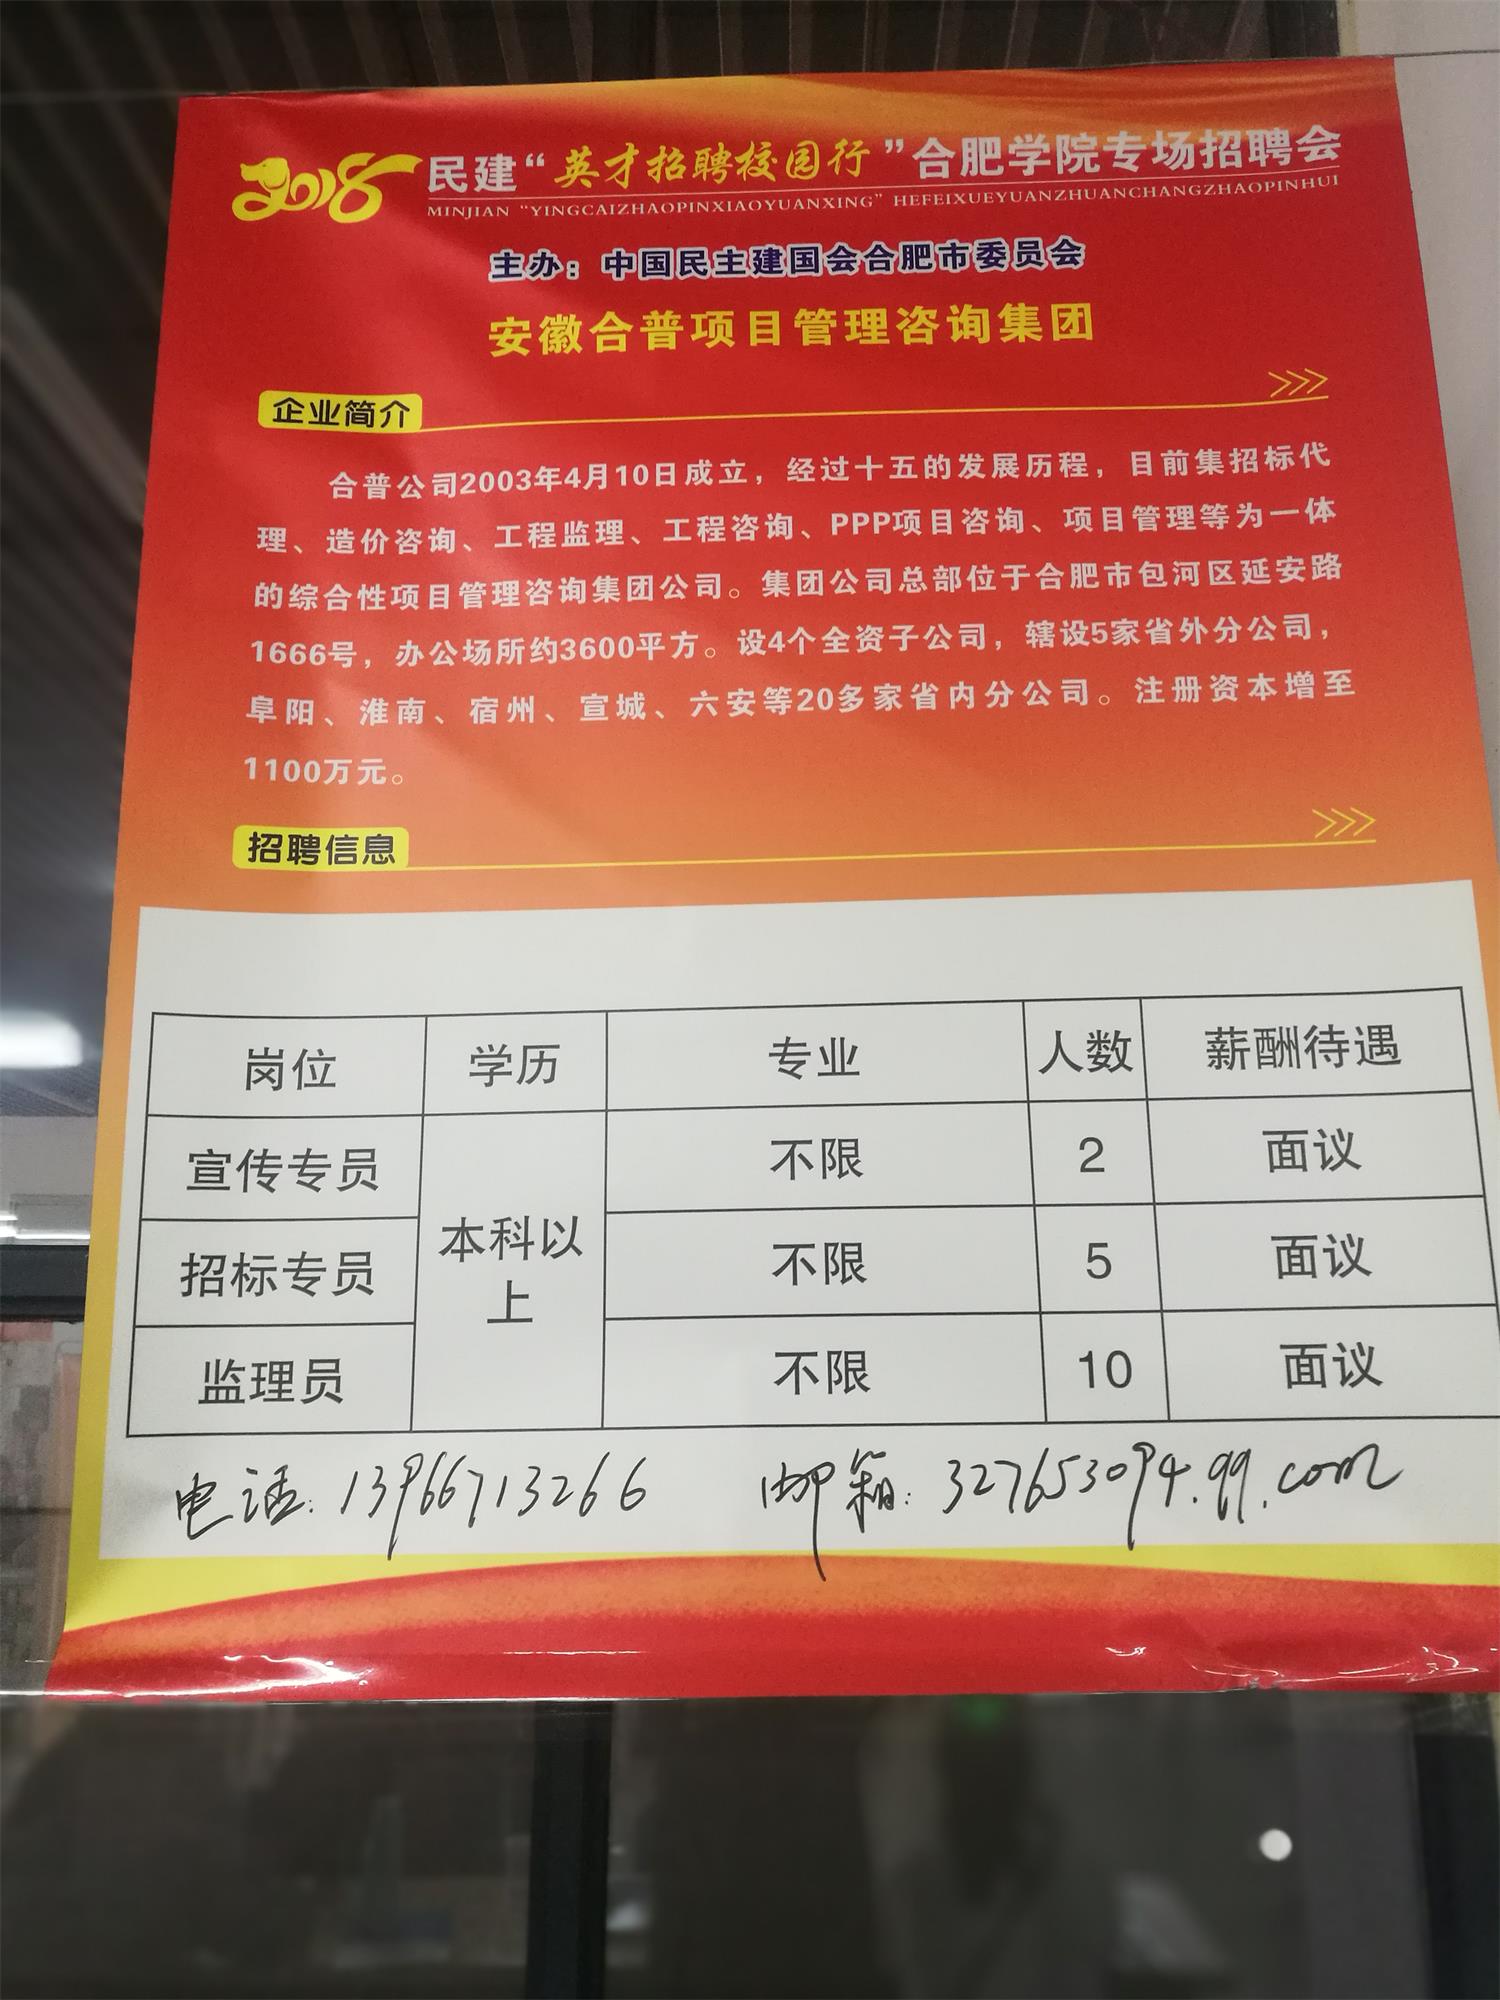 2018 民建“英才招聘校园行”合肥学院专场招聘会
MINJIAN “YINGCAIZHAOPINXIAOYUANXING” HEFEIXUEYUANZHUANCHANGZHAOPINHUI
主办：中国民主建国会合肥市委员会
安徽合普项目管理咨询集团
企业简介
合普公司2003年4月10日成立，经过十五的发展历程，目前集招标代
理、造价咨询、工程监理、工程咨询、PPP项目咨询、项目管理等为一体
的综合性项目管理咨询集团公司。集团公司总部位于合肥市包河区延安路
1666号，办公场所约3600平方。设4个全资子公司，辖设5家省外分公司，
阜阳、淮南、宿州、宣城、六安等20多家省内分公司。注册资本增至
1100万元。
招聘信息
岗位 学历 专业 人数 薪酬待遇
宣传专员 本科以上 不限 2 面议
招标专员 不限 5 面议
监理员 不限 10 面议
电话：13966713266 邮箱：327653094.qq.com